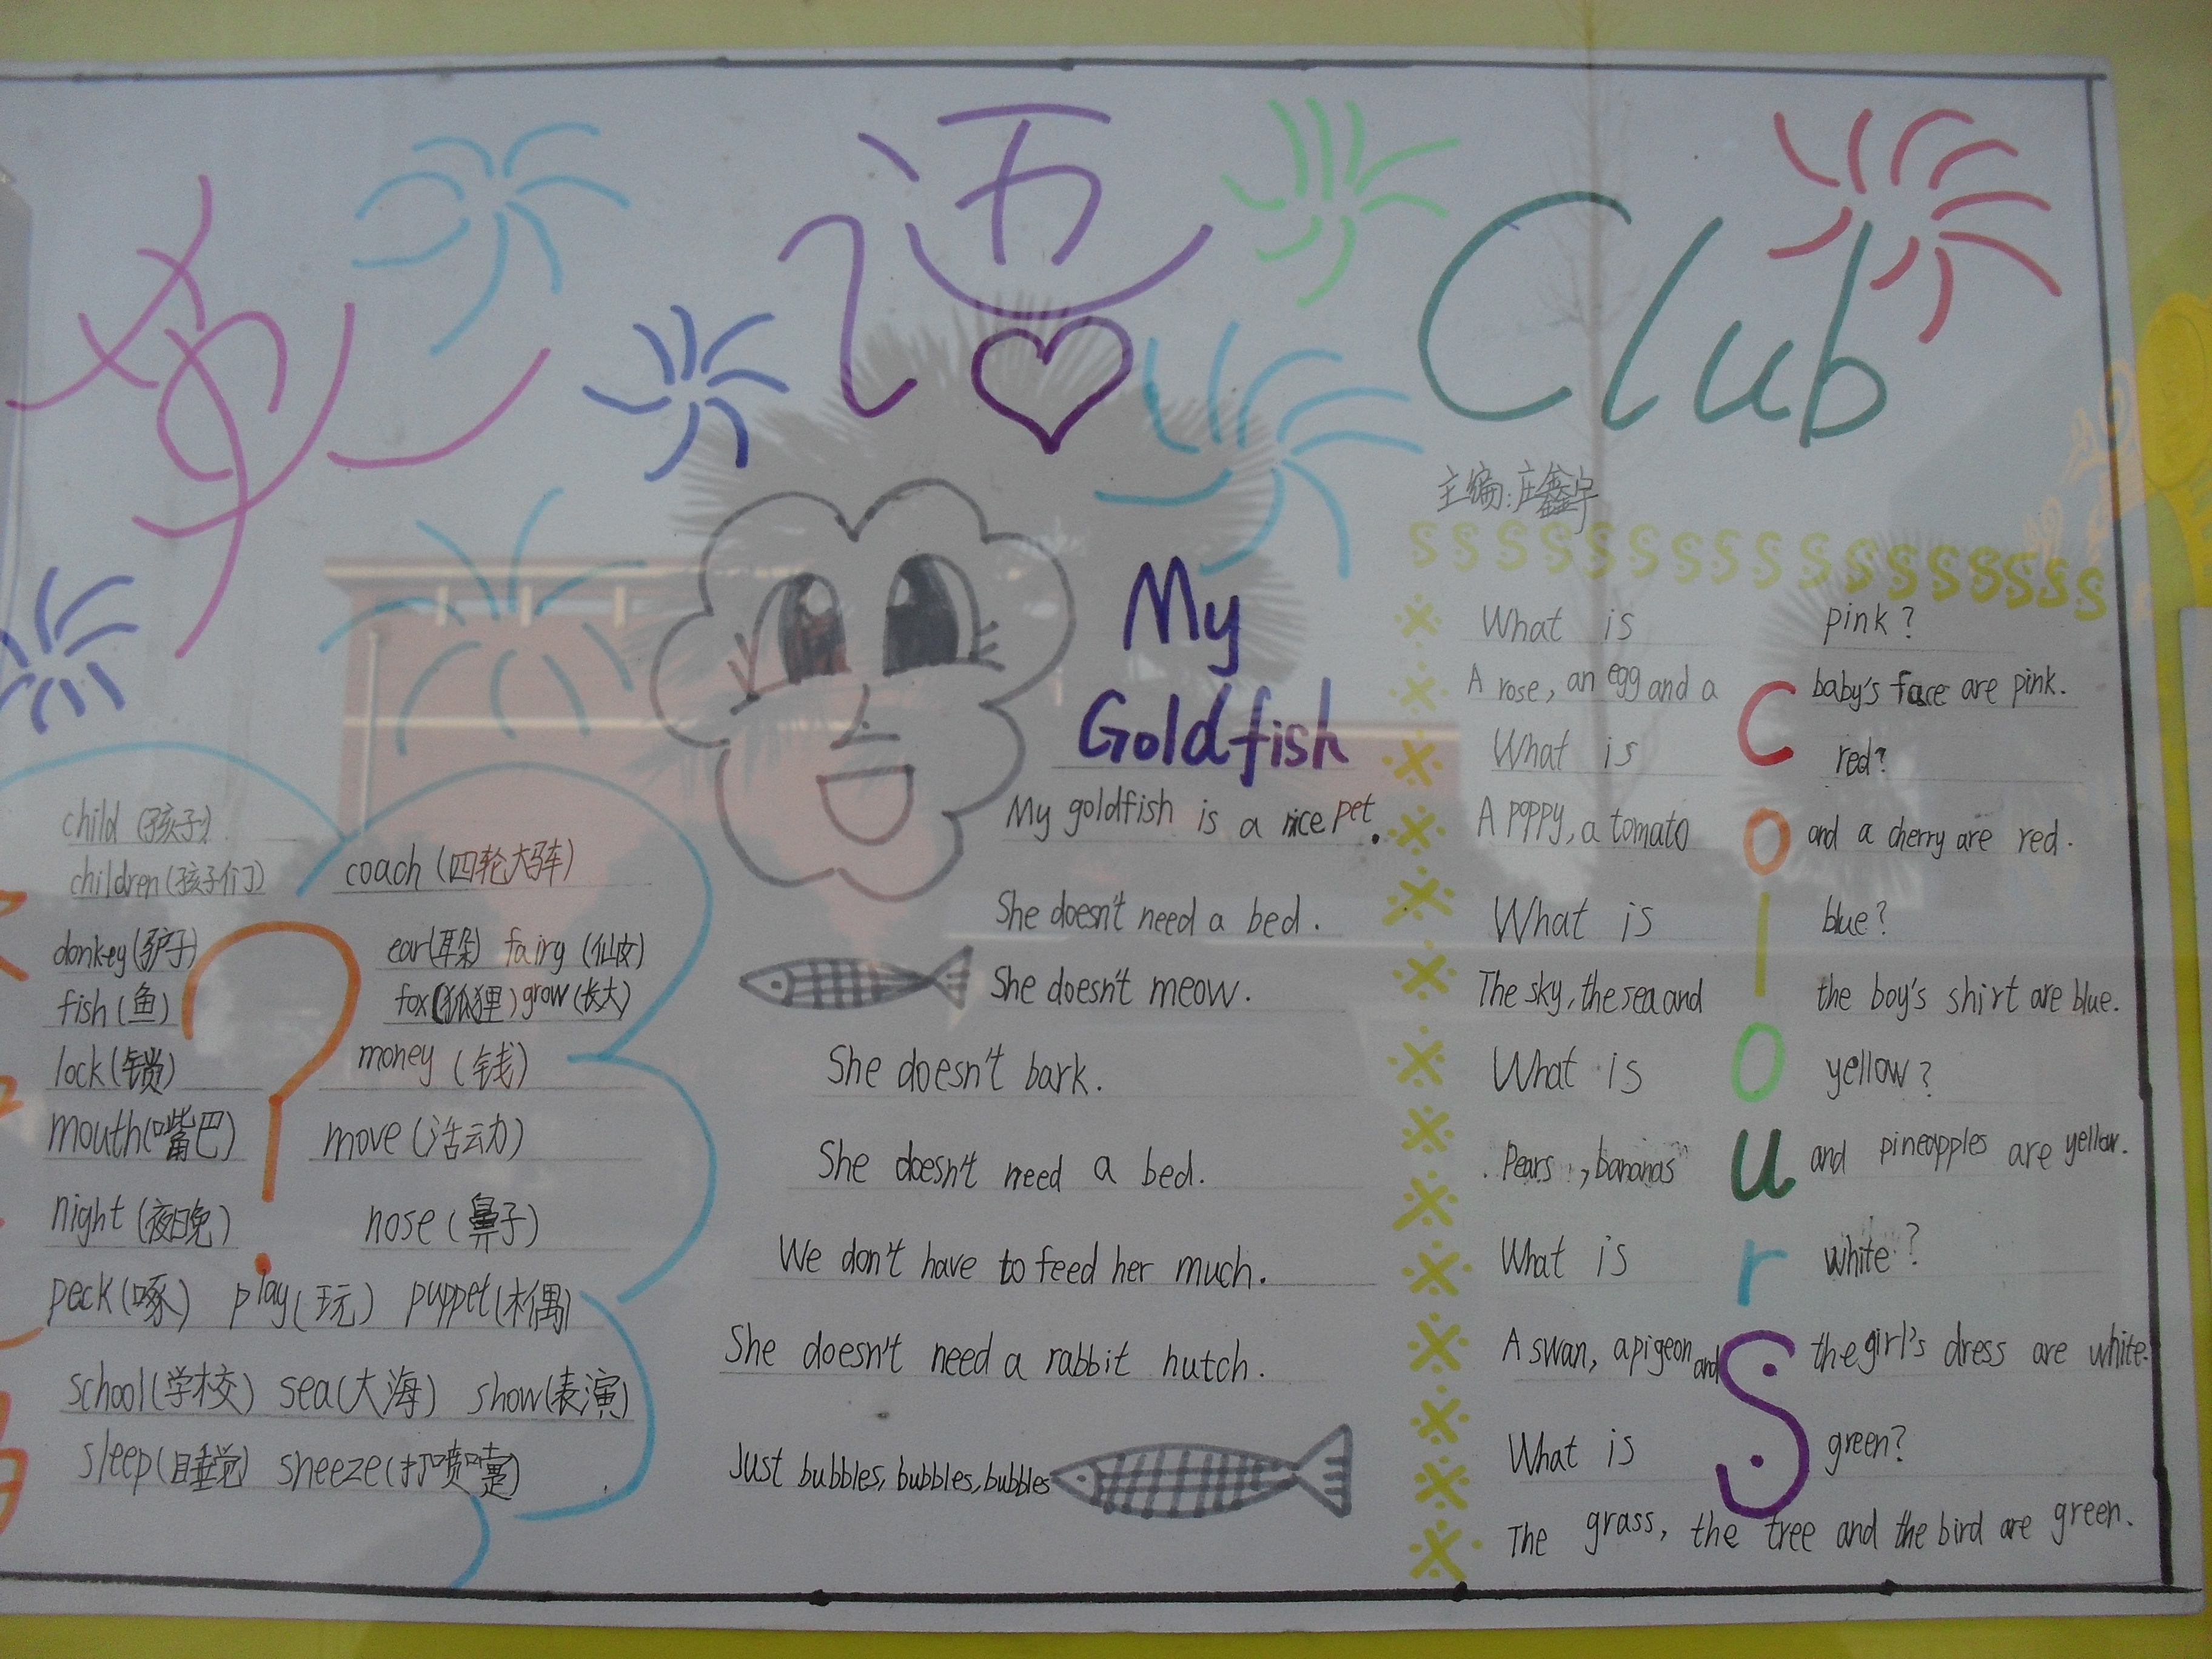 Club
主编:庄鑫宇
child (孩子)
children (孩子们)
coach (四轮大马车)
donkey (驴子)
ear (耳朵) fairy (仙女)
fish (鱼)
fox (狐狸) grow (长大)
lock (锁)
money (钱)
mouth (嘴巴)
move (活动)
night (夜晚)
nose (鼻子)
peck (啄) play (玩) puppet (木偶)
school (学校) sea (大海) show (表演)
sleep (睡觉) sneeze (打喷嚏)
My
Goldfish
My goldfish is a nice pet.
She doesn't need a bed.
She doesn't meow.
She doesn't bark.
She doesn't need a bed.
We don't have to feed her much.
She doesn't need a rabbit hutch.
Just bubbles, bubbles, bubbles
Colours
What is pink?
A rose, an egg and a baby's face are pink.
What is red?
A poppy, a tomato and a cherry are red.
What is blue?
The sky, the sea and the boy's shirt are blue.
What is yellow?
Pears, bananas and pineapples are yellow.
What is white?
A swan, a pigeon and the girl's dress are white.
What is green?
The grass, the tree and the bird are green.